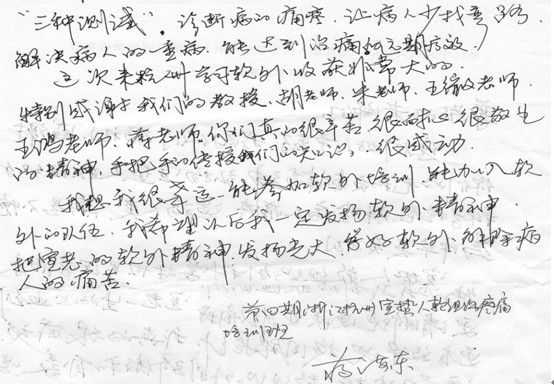 “三种测试”，诊断病的痛疼，让病人少找弯路，
解决病人的一重病，能达到治痛和远期疗效。
这次来杭州学习软外收获非常大的。
特别感谢于我们的教授、胡老师、朱老师、王俊老师、
王鸿老师、蒋老师。你们真的很辛苦 很耐心 很敬业
的精神，手把手的传授我们的知识，很感动。
我想我很幸运，能参加软外培训，能加入软
外的队伍，我希望以后我一定发扬软外精神，
把宣老的软外精神，发扬光大，学好软外，解除病
人的痛苦。
第四期浙江杭州宣蛰人软组织疼痛
培训班